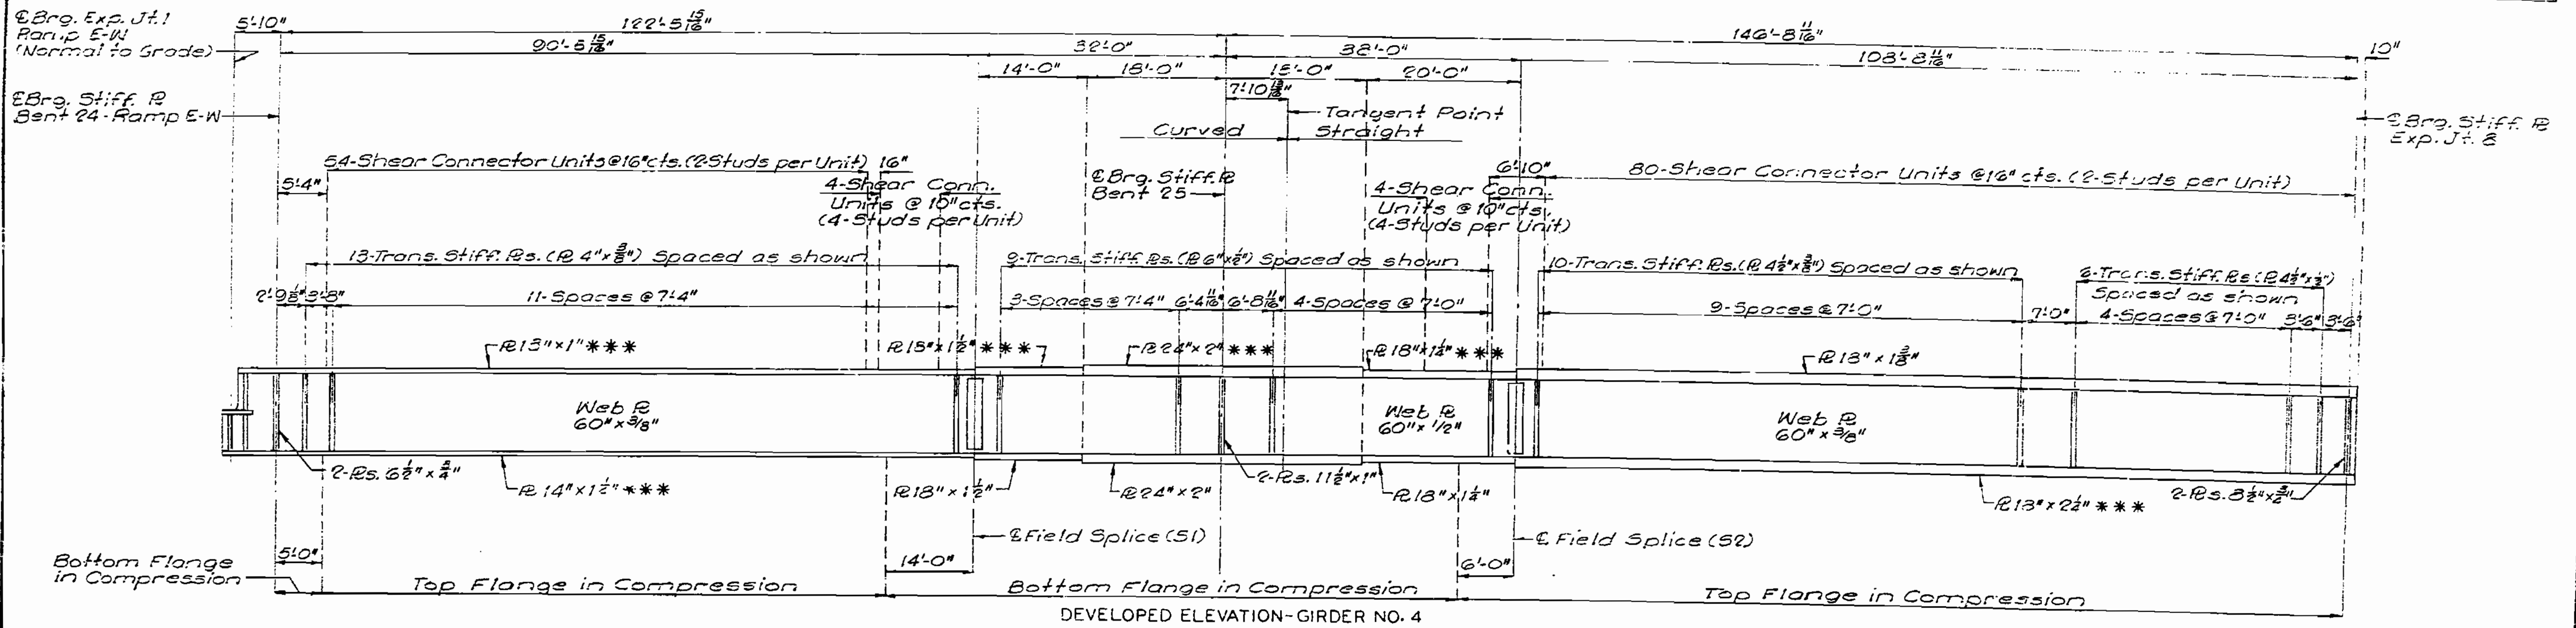 ℄ Brg. Exp. Jt. 1
Ramp E-W
(Normal to Grade)
5'-10"
122'-5 15/16"
146'-8 11/16"
10"
90'-5 15/16"
32'-0"
38'-0"
108'-8 11/16"
14'-0"
18'-0"
20'-0"
7'-10 13/16"
℄ Brg. Stiff. ℞
Bent 24-Ramp E-W
Tangent Point
Curved
Straight
℄ Brg. Stiff. ℞
Exp. Jt. 8
54-Shear Connector Units @ 16" cts. (2-Studs per Unit)
16"
5'-4"
4-Shear Conn.
Units @ 10" cts.
(4-Studs per Unit)
℄ Brg. Stiff. ℞
Bent 25
4-Shear Conn.
Units @ 10" cts.
(4-Studs per Unit)
6'-10"
80-Shear Connector Units @ 16" cts. (2-Studs per Unit)
13-Trans. Stiff. ℞s. (℞ 4" x 3/8") Spaced as shown
9-Trans. Stiff. ℞s. (℞ 6" x 1/2") Spaced as shown
10-Trans. Stiff. ℞s. (℞ 4 1/2" x 3/8") Spaced as shown
6-Trans. Stiff. ℞s (℞ 4 1/2" x 1/2")
Spaced as shown
2'-9 1/8"
3'-8"
11-Spaces @ 7'-4"
3-Spaces @ 7'-4"
6'-4 11/16"
6'-8 11/16"
4-Spaces @ 7'-0"
9-Spaces @ 7'-0"
7'-0"
4-Spaces @ 7'-0"
3'-6"
3'-6"
℞ 13" x 1" ***
℞ 18" x 1 1/2" ***
℞ 24" x 2" ***
℞ 18" x 1 1/4" ***
℞ 18" x 1 3/8"
Web ℞
60" x 3/8"
Web ℞
60" x 1/2"
Web ℞
60" x 3/8"
2-℞s. 6 1/2" x 3/4"
℞ 14" x 1 1/2" ***
℞ 18" x 1 1/2"
℞ 24" x 2"
2-℞s. 11 1/2" x 1"
℞ 18" x 1 1/4"
℞ 18" x 2 1/4" ***
2-℞s. 8 1/2" x 3/4"
℄ Field Splice (S1)
℄ Field Splice (S2)
5'-0"
14'-0"
6'-0"
Bottom Flange
in Compression
Top Flange in Compression
Bottom Flange in Compression
Top Flange in Compression
DEVELOPED ELEVATION-GIRDER NO. 4